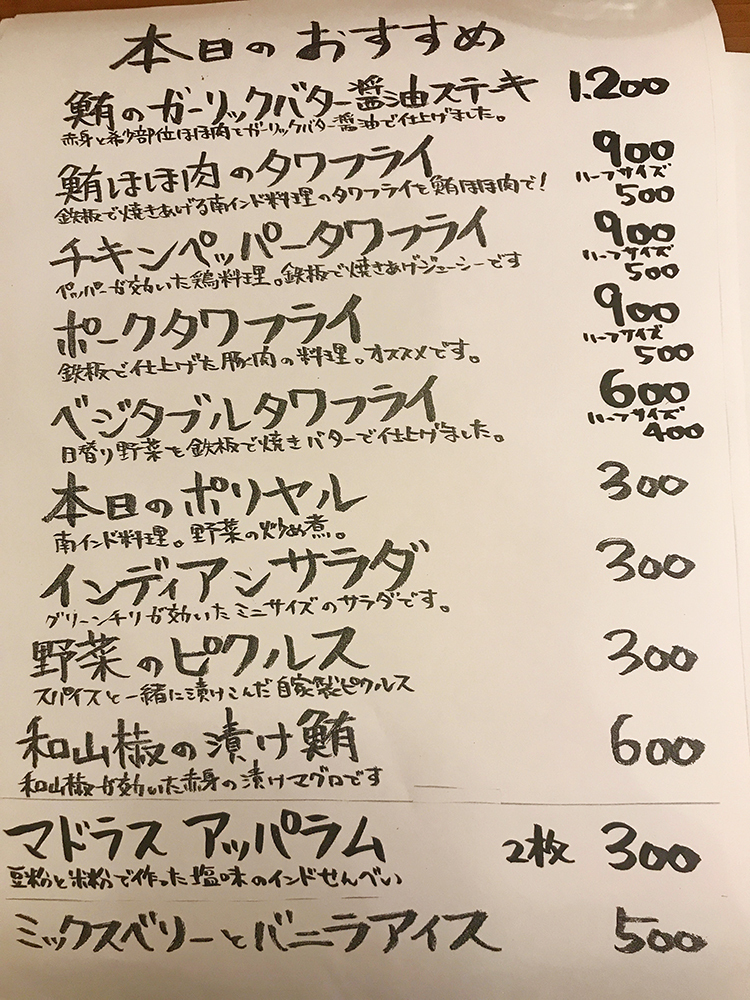 本日のおすすめ
鮪のガーリックバター醤油ステーキ 1.200
赤身と希少部位ほほ肉をガーリックバター醤油で仕上げました。
鮪ほほ肉のタワフライ 900
ハーフサイズ
鉄板で焼きあげる南インド料理のタワフライを鮪ほほ肉で! 500
チキンペッパータワフライ 900
ハーフサイズ
ペッパーが効いた鶏料理。鉄板で焼きあげジューシーです 500
ポークタワフライ 900
ハーフサイズ
鉄板で仕上げた豚肉の料理。オススメです。 500
ベジタブルタワフライ 600
ハーフサイズ
日替り野菜を鉄板で焼きバターで仕上げました。 400
本日のポリヤル 300
南インド料理。野菜の炒め煮。
インディアンサラダ 300
グリーンチリが効いたミニサイズのサラダです。
野菜のピクルス 300
スパイスと一緒に漬けこんだ自家製ピクルス
和山椒の漬け鮪 600
和山椒が効いた赤身の漬けマグロです
マドラス アッパラム 2枚 300
豆粉と米粉で作った塩味のインドせんべい
ミックスベリーとバニラアイス 500